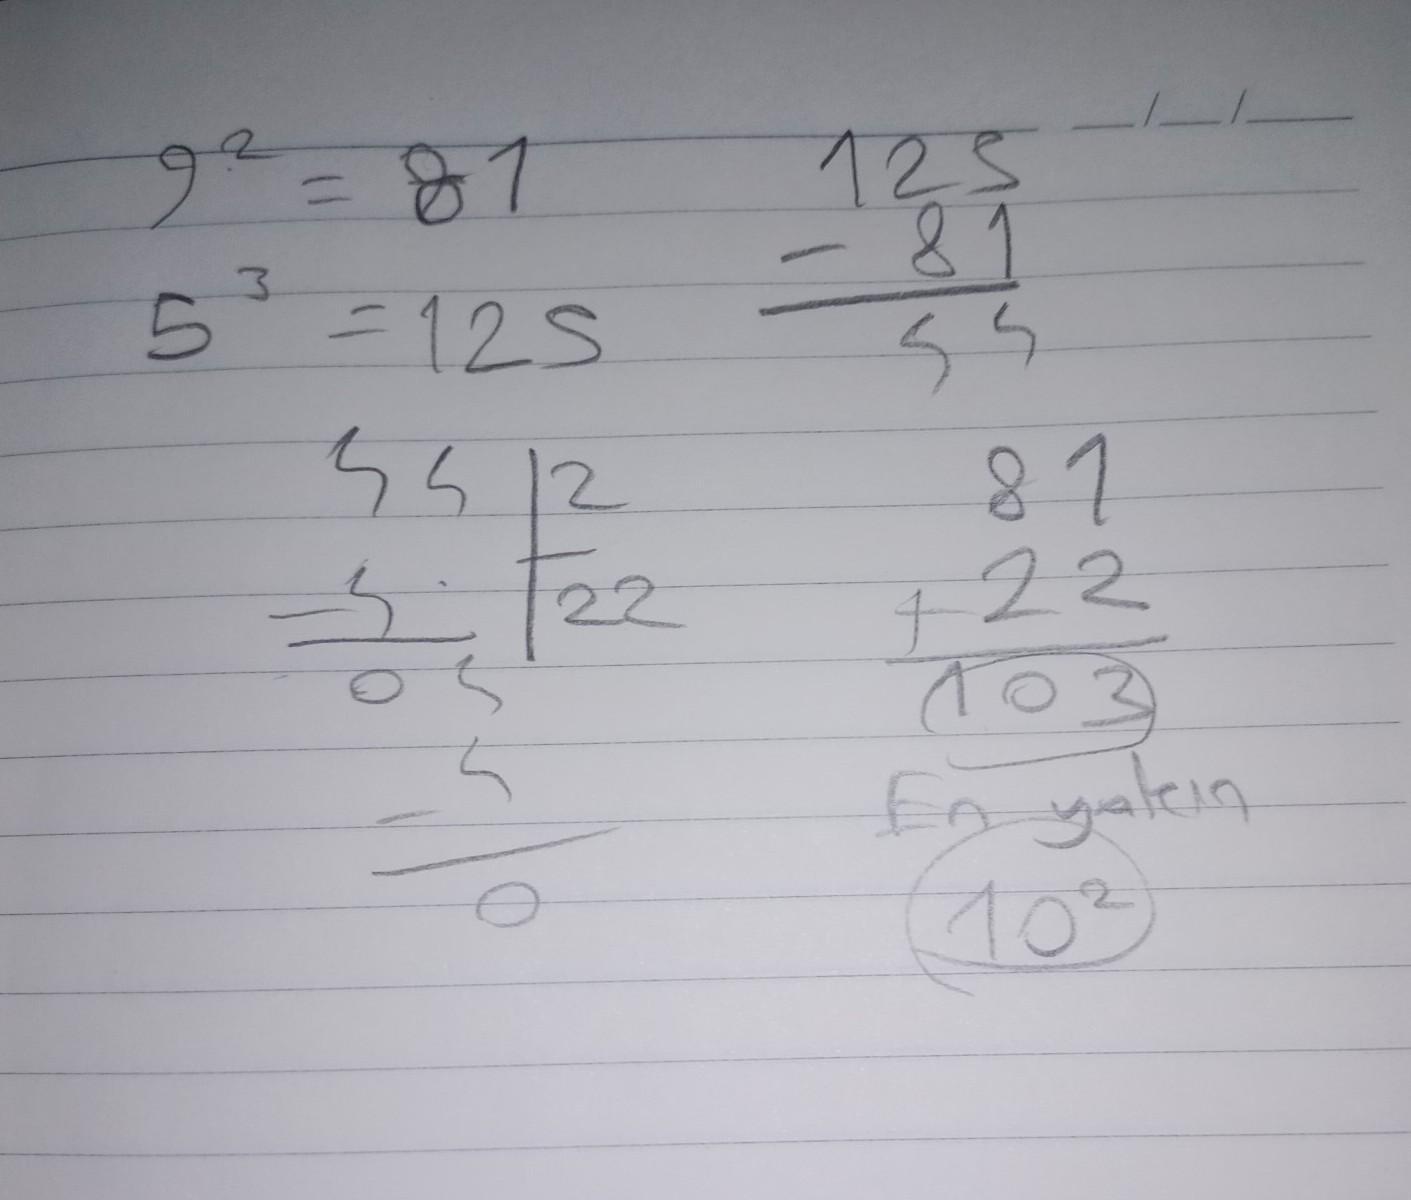 9² = 81
5³ = 125
125
- 81
44
44 | 2
- 4 22
04
- 4
0
81
+ 22
103
En yakın
10²